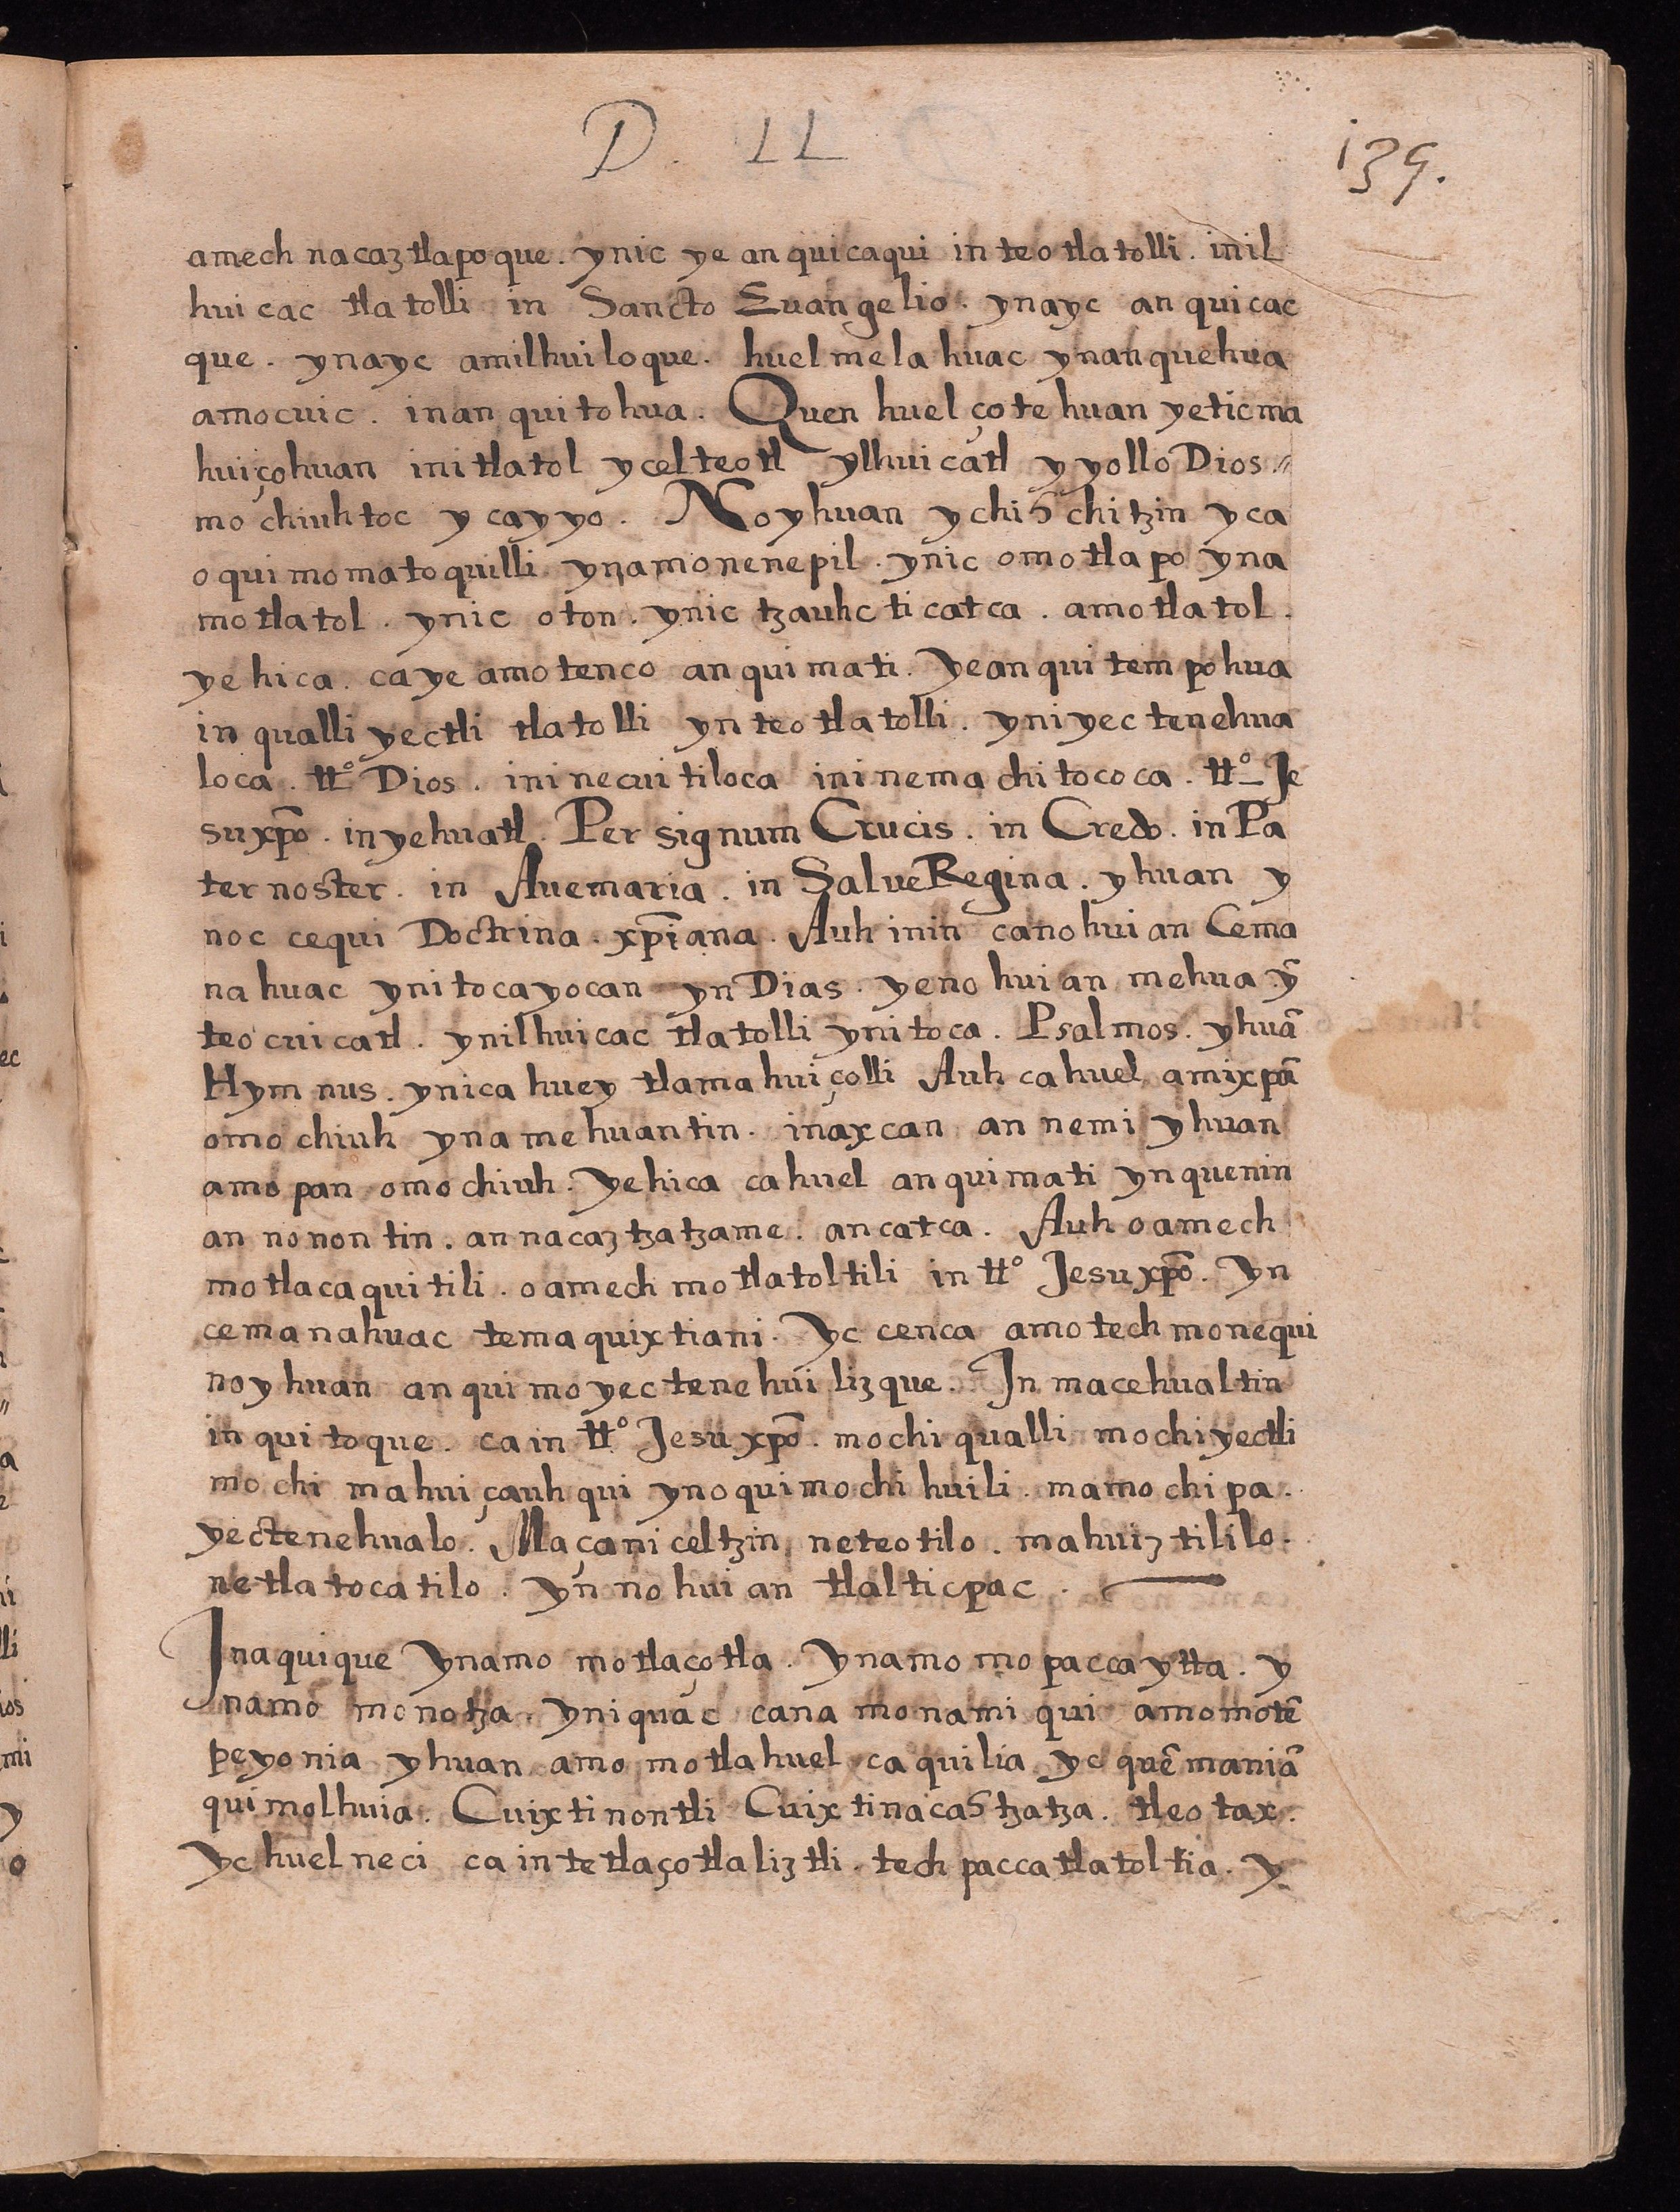 D. LL
139.
amech nacaztlapoque. ynic ye anquicaqui in teotlatolli. inil
huicac tlatolli in Sancto Euangelio. ynayc anquicac
que. ynayc amilhuiloque. huel melahuac ynanquehua
amocuic. inanquitohua. Quen huel çotehuan yeticma
huiçohuan initlatol ycelteotl ylhuicatl yyollo Dios
mochiuhtoc ycayyo. Noyhuan ychiSchitzin yca
oquimomatoquilli ynamonenepil. ynic omotlapo yna
motlatol. ynic oton. ynic tzauhcticatca. amotlatol.
yehica. caye amotenco anquimati. Yeanquitempohua
inqualli yectli tlatolli ynteotlatolli. yniyectenehua
loca. tt.º Dios. ininecuitiloca ininemachitococa. ttº Je
suxp̄o. inyehuatl. Per signum Crucis. in Credo. in Pa
ternoster. in Auemaria. in SalueRegina. yhuan y
noc cequi Doctrina. xp̄iana. Auh inin canohuian Cema
nahuac ynitocayocan ynDias. yenohuian mehua ỹ
teocuicatl. ynilhuicac tlatolli ynitoca. Psalmos. yhuã
Hymnus. ynica huey tlamahuiçolli Auh cahuel amixpã
omochiuh ynamehuantin. inaxcan annemi yhuan
amopan omochiuh. Yehica cahuel anquimati ynquenin
annonontin. annacaztzatzame. ancatca. Auh oamech
motlacaquitili. oamechmotlatoltili in ttº Jesuxp̄o. Yn
cemanahuac temaquixtiani. Yc cenca amotechmonequi
noyhuan anquimoyectenehuilizque. In macehualtin
inquitoque. cain ttº Jesuxp̄o. mochi qualli mochiyectli
mochi mahuiçauhqui ynoquimochihuili. mamochipa.
yectenehualo. Maçaniceltzin neteotilo. mahuiztililo.
netlatocatilo. Yn nohuian tlalticpac.
Inaquique Ynamo motlaçotla. Ynamo mopaccaytta. y
namo monotza. yniquac cana monamiqui amomotẽ
peyonia yhuan amo motlahuelcaquilia yc quẽmaniã
quimolhuia. Cuixtinontli CuixtinacaStzatza. tleotax.
Yc huelneci cain tetlaçotlaliztli. techpaccatlatoltia. Y